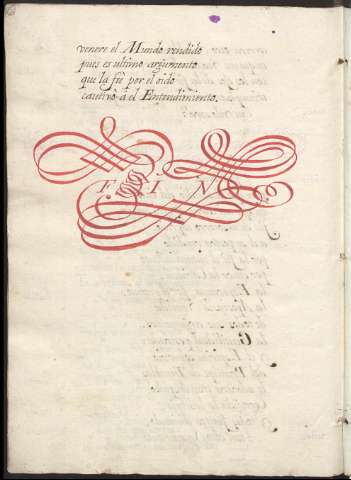 venere el Mundo rendido
pues es ultimo argumento
que la fiè por el oido
cautivo à el Entendimiento.
F I N